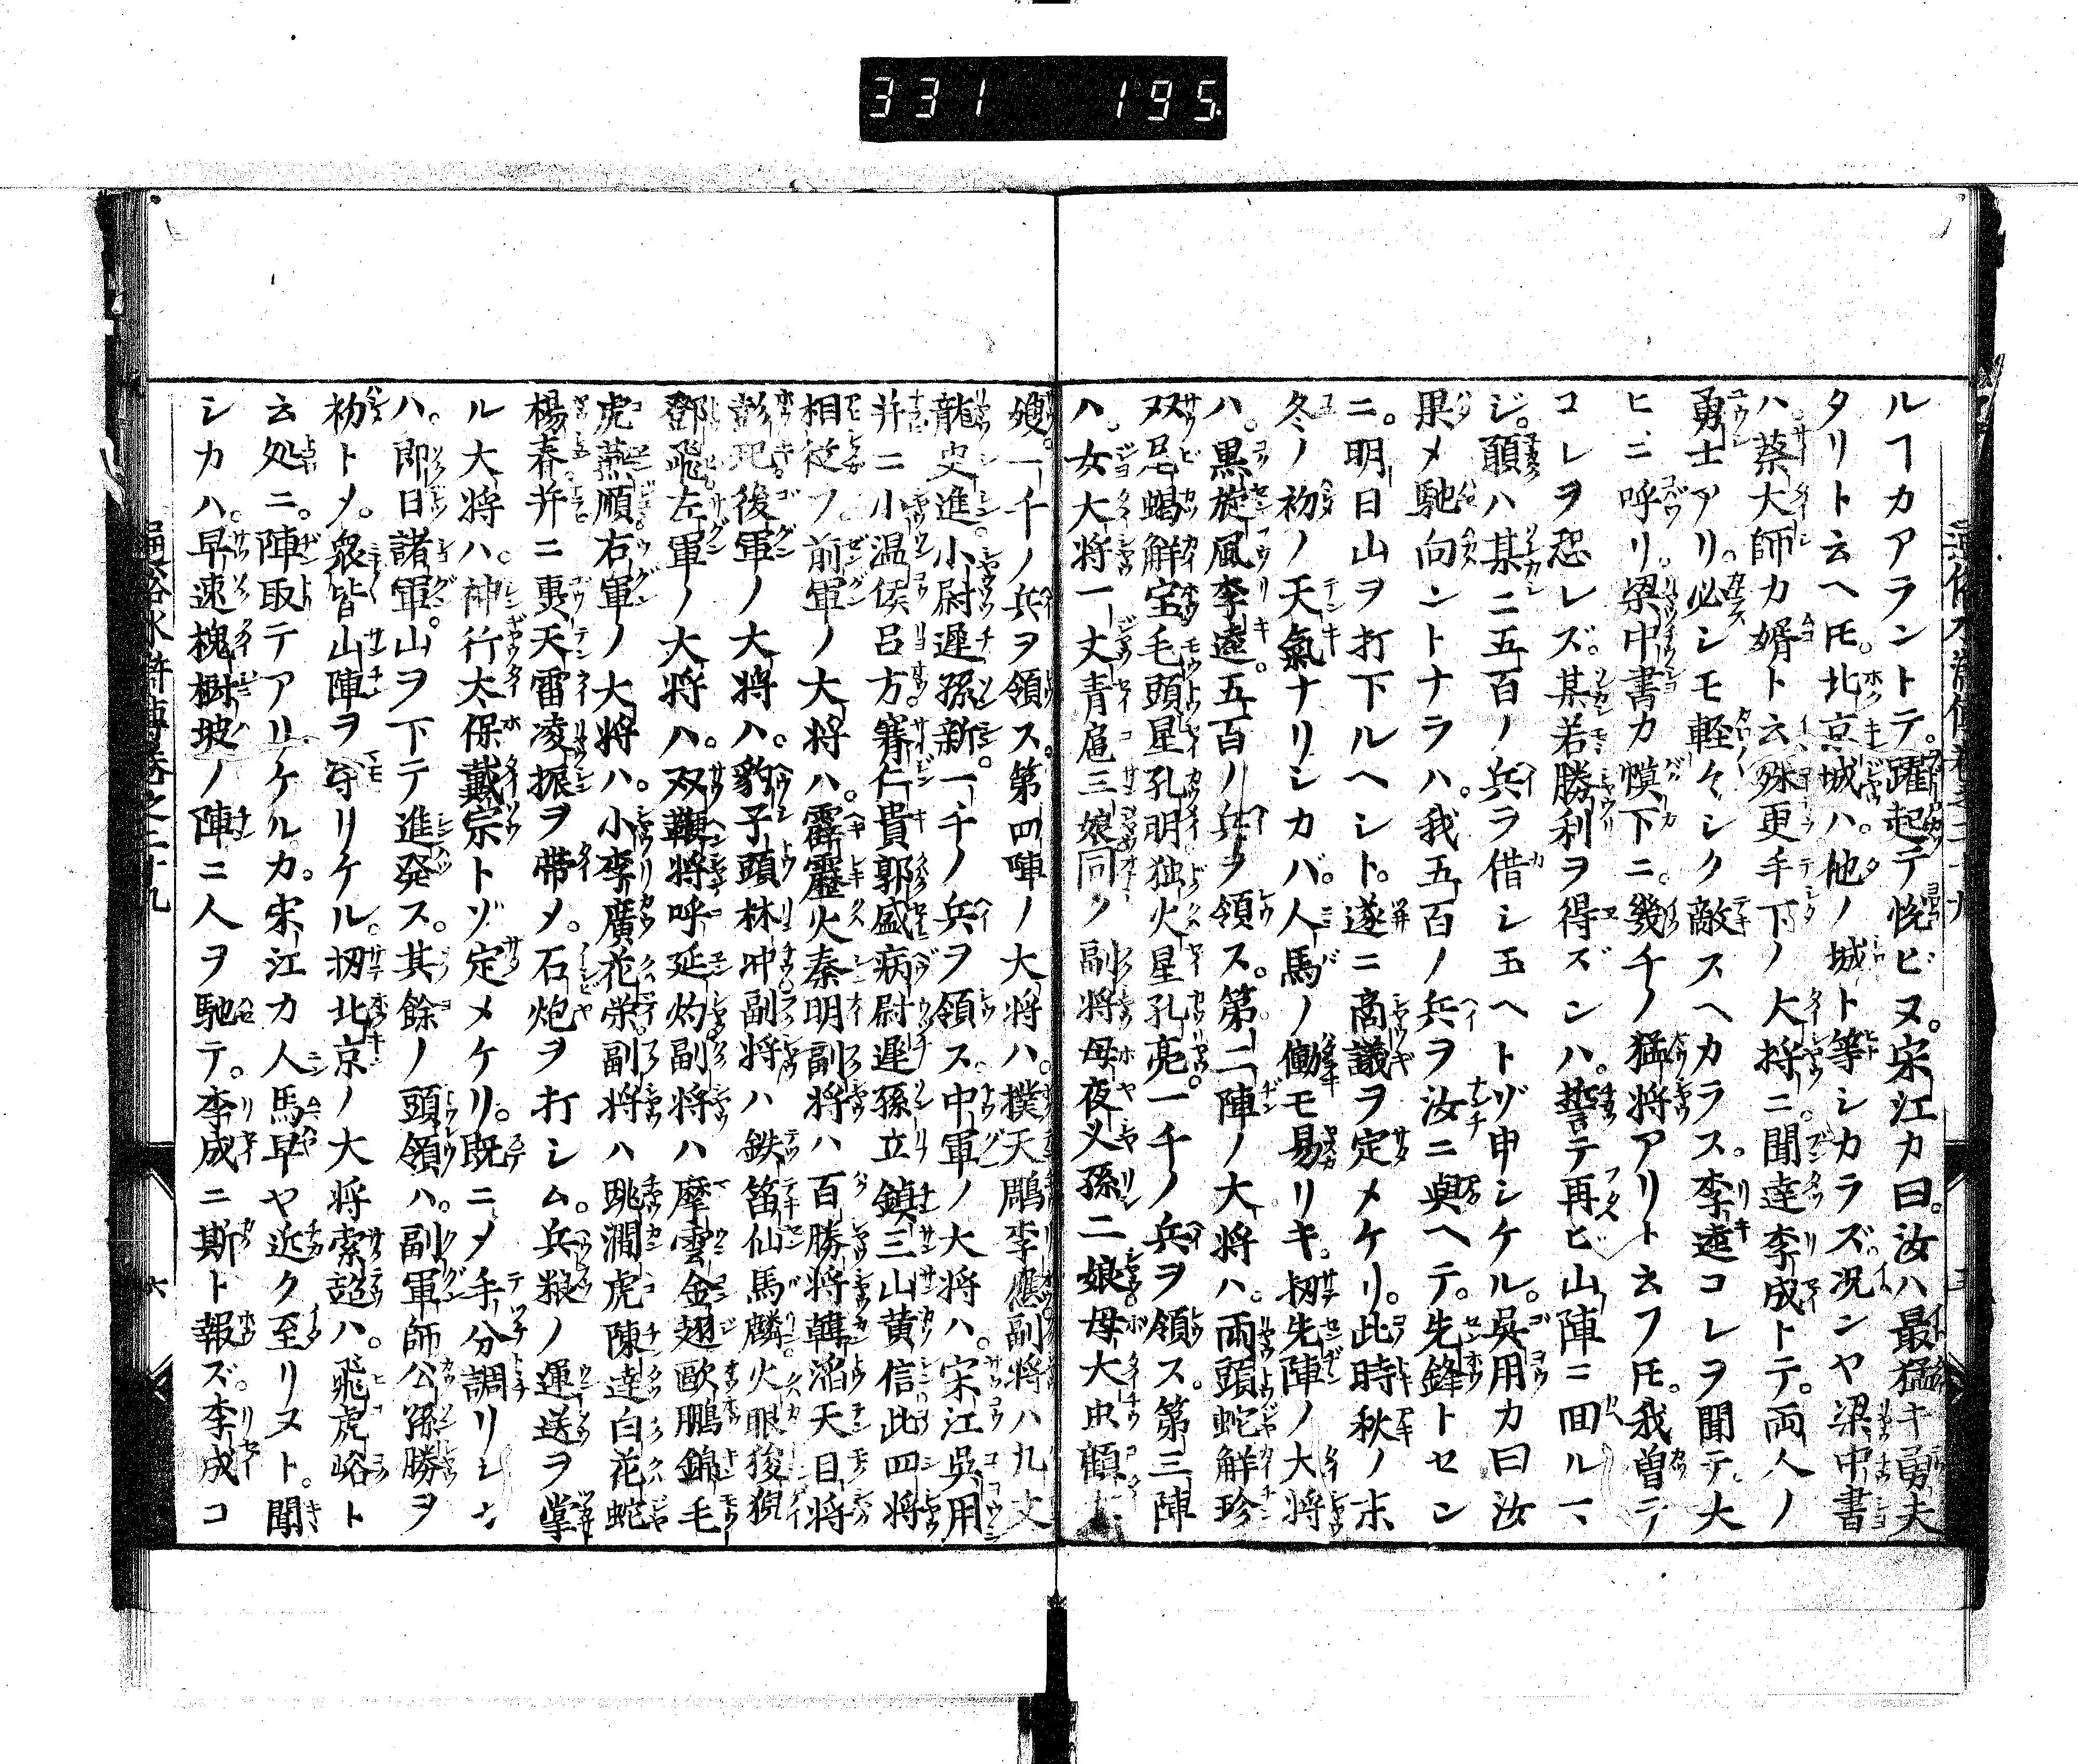 331 195
ルヿカアラントテ。躍起テ悦ビヌ。宋江カ曰。汝ハ最猛キ勇夫
タリト云ヘ𪜈。北京城ハ。他ノ城ト等シカラズ。况ンヤ梁中書
ハ。蔡大師カ婿ト云。殊更手下ノ大将ニ。聞達李成トテ。両人ノ
勇士アリ。必シモ軽々シク敵スヘカラス。李逵コレヲ聞テ。大
ヒニ呼リ。梁中書カ幕下ニ。幾千ノ猛将アリト云フ𪜈。我曽テ
コレヲ恐レズ。某若勝利ヲ得ズンハ。誓テ再ビ山陣ニ回ルマ
ジ。願ハ某ニ五百ノ兵ヲ借シ玉ヘトゾ申シケル。呉用カ曰汝
果メ馳向ントナラハ。我五百ノ兵ヲ汝ニ與ヘテ。先鋒トセン
ニ。明日山ヲ打下ルヘシト。遂ニ商議ヲ定メケリ。此時秋ノ末
冬ノ初ノ天氣ナリシカバ。人馬ノ働モ易リキ。扨先陣ノ大将
ハ。黒旋風李逵。五百ノ兵ヲ領ス。第二陣ノ大将ハ。両頭蛇解珍
双尾蝎解宝毛頭星孔明独火星孔亮。一千ノ兵ヲ領ス。第三陣
ハ。女大将一丈青扈三娘同ク副将母夜叉孫二娘。母大虫顧大
嫂。一千ノ兵ヲ領ス。第四陣ノ大将ハ。撲天鵰李應副将ハ九丈
龍史進。小尉遲孫新。一千ノ兵ヲ領ス。中軍ノ大将ハ。宋江呉用
并ニ小温侯呂方。賽仁貴郭盛病尉遲孫立鎮三山黄信此四将
相從フ。前軍ノ大将ハ。霹靂火秦明副将ハ百勝将韓滔天目将
彭玘。後軍ノ大将ハ。豹子頭林冲副将ハ鉄笛仙馬麟。火眼狻猊
鄧飛。左軍ノ大将ハ。双鞭将呼延灼副将ハ摩雲金翅歐鵬錦毛
虎燕順。右軍ノ大将ハ。小李廣花榮副将ハ跳澗虎陳達白花蛇
楊春并ニ轟天雷凌振ヲ帯メ。石炮ヲ打シム。兵粮ノ運送ヲ掌
ル大将ハ。神行太保戴宗トゾ定メケリ。既ニメ手分調リシカ
ハ。即日諸軍。山ヲ下テ進発ス。其餘ノ頭領ハ。副軍師公孫勝ヲ
初トメ。衆皆山陣ヲ守リケル。扨北京ノ大将索超ハ。飛虎峪ト
云処ニ。陣取テアリケルカ。宋江カ人馬早ヤ近ク至リヌト。聞
シカハ。早速槐樹坡ノ陣ニ人ヲ馳テ。李成ニ斯ト報ズ。李成コ
通俗水滸傳巻之二十九
六